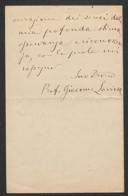 dei sensi del
mia profonda stima
speranza e riconoscen
za, con la quale mi
segno
Suo Dev.mo
Prof. Giacomo